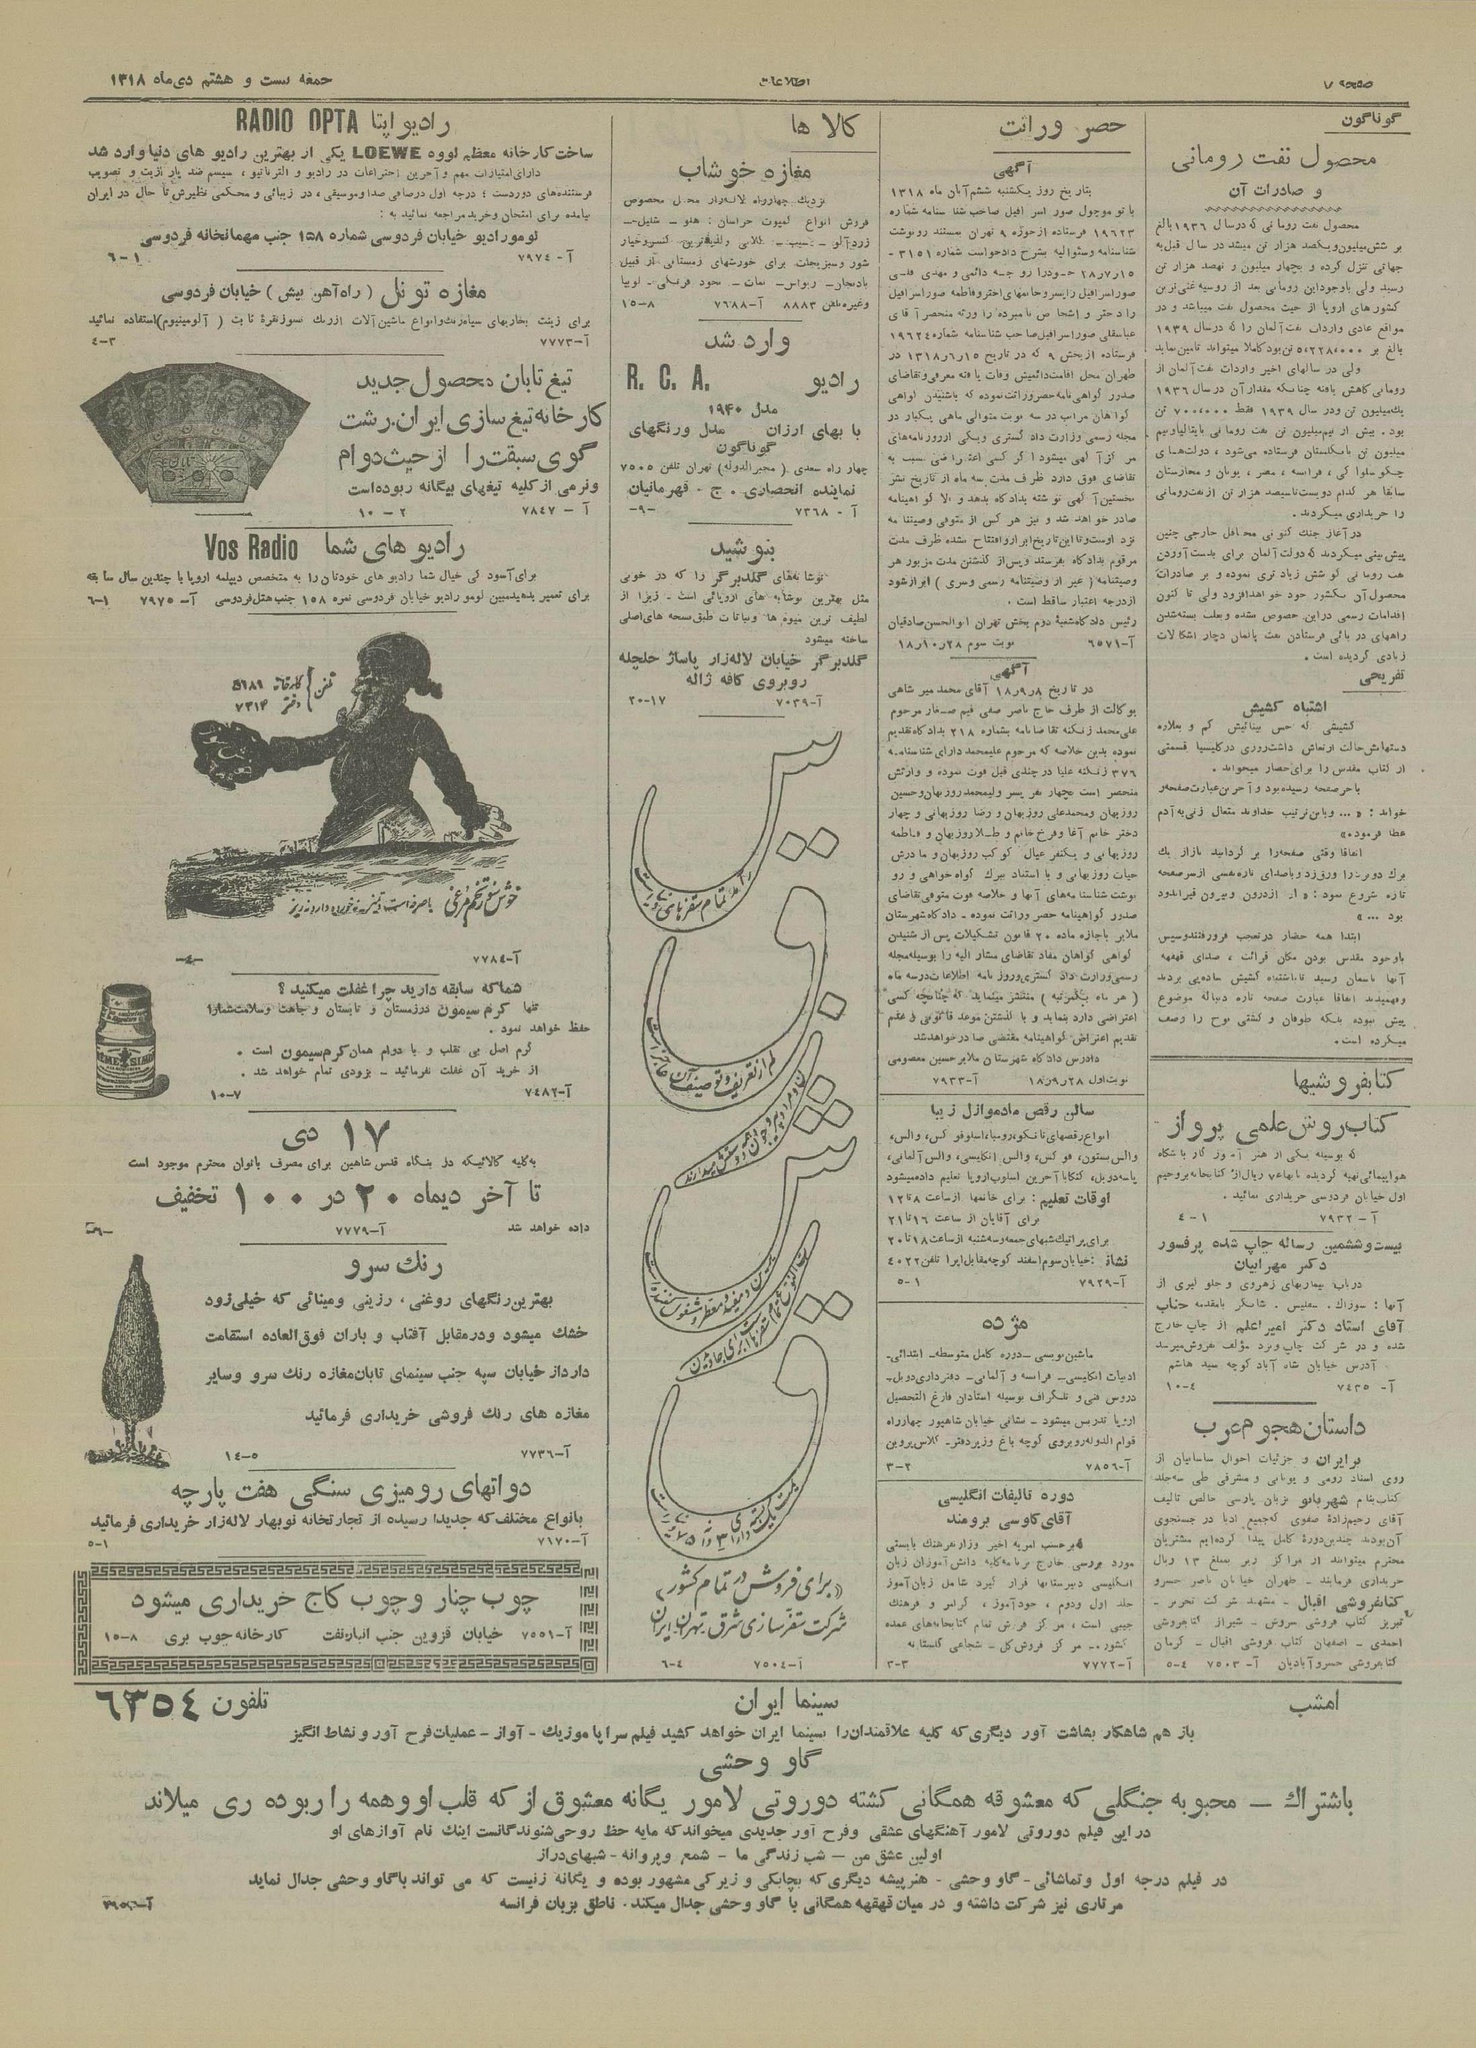 صفحه ۷
اطلاعات
جمعه بیست و هشتم دی‌ماه ۱۳۱۸
گوناگون
محصول نفت رومانی
و صادرات آن
محصول نفت رومانی که در سال ۱۹۳۶ بالغ
بر شش میلیون و یکصد هزار تن میشد در سال قبل به
جهانی تنزل کرده و بچهار میلیون و نهصد هزار تن
رسید ولی باوجود این رومانی بعد از روسیه غنی‌ترین
کشورهای اروپا از حیث نفت میباشد و در
مواقع عادی واردات نفت آلمان را که در سال ۱۹۳۹
بالغ بر ۵٫۲۲۸٫۰۰۰ تن بود کاملا میتواند تامین نماید
ولی در سالهای اخیر واردات نفت آلمان از
رومانی کاهش یافته چنانکه مقدار آن در سال ۱۹۳۶
یک میلیون تن و در سال ۱۹۳۹ فقط ۷۰۰٫۰۰۰ تن
بود . بیش از نیم میلیون تن نفت رومانی بایتالیا و نیم
میلیون تن بانگلستان فرستاده می‌شود ، دولت‌های
چکوسلواکی ، فرانسه ، مصر ، یونان و مجارستان
سابقا هر کدام دویست تا سیصد هزار تن از نفت رومانی
را خریداری میکردند .
در آغاز جنگ کنونی محافل خارجی چنین
پیش‌بینی میکردند که دولت آلمان برای بدست آوردن
نفت رومانی کوشش زیادتری نموده و بر صادرات
محصول آن بکشور خود خواهد افزود ولی تا کنون
اقدامات رسمی در این خصوص نشده و بعلت بسته‌شدن
راههای دریائی فرستادن نفت بآلمان دچار اشکالات
زیادی گردیده است .
تفریحی
اشتباه کشیش
کشیشی که حس بینائیش کم و بعلاوه
دستهایش حالت ارتعاش داشت روزی در کلیسیا قسمتی
از کتاب مقدس را برای حضار میخواند .
بآخر صفحه رسیده بود و آخرین عبارت صفحه را
خواند : « ... و باین ترتیب خداوند متعال زنی به آدم
عطا فرمود »
اتفاقا وقتی صفحه را بر گردانید بازار یک
برگ دو برگ را ورق زد و باصدای تازه نفسی از سر صفحه
تازه شروع نمود : « از اندرون و بیرون قیراندود
بود ... »
ابتدا همه حضار در تعجب فرو رفتند و سپس
باوجود مقدس بودن مکان قرائت ، صدای قهقهه
آنها بآسمان رسید تا باشتباه کشیش ساده پی بردند
وفهمیدند اتفاقا عبارت صفحه تازه دنباله موضوع
پیش نبوده بلکه طوفان و کشتی نوح را وصف
میکرده است .
کتابفروشیها
کتاب روش علمی پرواز
که بوسیله یکی از هنر آموزگار باشگاه
هواپیمائی تهیه گردیده با بهای ۷ ریال از کتابخانه بروخیم
اول خیابان فردوسی خریداری نمائید .
آ – ۷۹۳۲ ۱–۴
بیست و ششمین رساله چاپ شده پرفسور
دکتر مهرابیان
در باب بیماریهای زهروی و جلو گیری از
آنها : سوزاک . سفلیس . شانکر با مقدمه جناب
آقای استاد دکتر امیر اعلم از چاپ خارج
شده و در شرکت چاپ و نزد مؤلف بفروش میرسد
آدرس خیابان شاه آباد کوچه سید هاشم
آ– ۷۴۳۵ ۴–۱۰
داستان هجوم عرب
بر ایران و جزئیات احوال ساسانیان از
روی اسناد رومی و یونانی و مشرقی طی سه جلد
کتاب بنام شهربانو بزبان پارسی خالص تالیف
آقای رحیم‌زاده صفوی که جمیع ادبا در جستجوی
آن بودند چندین دورۀ کامل پیدا کرده‌ایم مشتریان
محترم میتوانند از مراکز زیر بمبلغ ۱۳ ریال
خریداری فرمایند – طهران خیابان ناصر خسرو
کتابفروشی اقبال – مشهد شرکت تحریر –
تبریز کتاب فروشی سروش – شیراز کتابفروشی
احمدی – اصفهان کتاب فروشی اقبال – کرمان
کتابفروشی خسرو آبادیان آ– ۷۵۰۳ ۴–۵
حصر وراثت
آگهی
بتاریخ روز یکشنبه ششم آبان ماه ۱۳۱۸
بانو موجول صور اسرافیل صاحب شناسنامه شماره
۱۹۶۲۳ فرستاده از حوزه ۹ تهران بمستند رونوشت
شناسنامه وسئوالیه بشرح دادخواست شماره ۳۱۵۱–
۱۵ر۷ر۱۸ خود را زوجه دائمی و مهدی قلی
صوراسرافیل را پسر و خانمهای اختر و فاطمه صوراسرافیل
را دختر و اشخاص نامبرده را ورثه منحصر آقای
عباسقلی صور اسرافیل صاحب شناسنامه شماره ۱۹۶۲۴
فرستاده از بخش ۹ که در تاریخ ۱۵ر۶ر۱۳۱۸ در
طهران محل اقامت دائمیش وفات یافته معرفی و تقاضای
صدور گواهی نامه حصر وراثت نموده که باشنیدن گواهی
گواهان مراتب در سه نوبت متوالی ماهی یکبار در
مجله رسمی وزارت دادگستری و یکی از روزنامه‌های
مرکز آگهی میشود اگر کسی اعتراضی نسبت به
تقاضای فوق دارد ظرف مدت سه ماه از تاریخ نشر
نخستین آگهی نوشته بدادگاه بدهد و الا گواهینامه
صادر خواهد شد و نیز هر کس از متوفی وصیتنامه
نزد اوست و تا این تاریخ ابراز و افتتاح نشده ظرف مدت
مرقوم بدادگاه بفرستد و پس از گذشتن مدت مزبور هر
وصیتنامه ( غیر از وصیتنامه رسمی و سری ) ابراز شود
از درجه اعتبار ساقط است .
رئیس دادگاه شعبۀ دوم بخش تهران ابوالحسن صادقیان
آ–۶۵۷۱ نوبت سوم ۲۸ر۱۰ر۱۸
آگهی
در تاریخ ۸ر۹ر۱۸ آقای محمد میر شاهی
بوکالت از طرف حاج ناصر صفی قیم صغار مرحوم
علی‌محمد زنگنه تقاضانامه بشماره ۲۱۸ بدادگاه تقدیم
نموده بدین خلاصه که مرحوم علیمحمد دارای شناسنامه
۳۷۶ زنگنه علیا در چندی قبل فوت نموده و وارثش
منحصر است بچهار نفر پسر ولیمحمد روزبهان و حسین
روزبهان و محمدعلی روزبهان و رضا روزبهانی و چهار
دختر خانم آغا و فرخ خانم و طلا روزبهان و فاطمه
روزبهانی و یکنفر عیال کوکب روزبهان و مادرش
حیات روزبهانی و با استناد ببرگ گواه خواهی و رو
نوشت شناسنامه‌های آنها و خلاصه فوت متوفی تقاضای
صدور گواهینامه حصر وراثت نموده – دادگاه شهرستان
ملایر باجازه ماده ۲۰ قانون تشکیلات پس از شنیدن
گواهی گواهان مفاد تقاضای مشار الیه را بوسیله مجله
رسمی وزارت دادگستری و روز نامه اطلاعات در سه ماه
( هر ماه یکمرتبه ) منتشر مینماید که چنانچه کسی
اعتراضی دارد بنماید و با گذشتن موعد قانونی و عدم
تقدیم اعتراض گواهینامه مقتضی صادر خواهد شد
دادرس دادگاه شهرستان ملایر حسین معصومی
نوبت اول ۲۸ر۹ر۱۸ آ–۷۹۳۳
سالن رقص مادموازل زیبا
انواع رقصهای تانگو، رومبا، اسلوفوکس، والس،
والس بستون، فوکس، والس انگلیسی، والس آلمانی،
پاسه دوبل، کلتکا با آخرین اسلوب اروپا تعلیم داده میشود
اوقات تعلیم : برای خانمها از ساعت ۸ تا ۱۲
برای آقایان از ساعت ۱۶ تا ۲۱
برای پراتیک شبهای جمعه و سه شنبه از ساعت ۱۸ تا ۲۰
نشانی : خیابان سوم اسفند کوچه مقابل اپرا تلفن ۴۰۲۲
آ–۷۹۲۹ ۱–۵
مژده
ماشین‌نویسی – دوره کامل متوسطه – ابتدائی –
ادبیات انگلیسی – فرانسه و آلمانی – دفترداری دوبل –
دروس فنی و تلگراف بوسیله استادان فارغ التحصیل
اروپا تدریس میشود – نشانی خیابان شاهپور چهارراه
قوام الدوله روبروی کوچه باغ وزیر دفتر – کلاس پروین
آ–۷۸۵۶ ۲–۳
دوره تالیفات انگلیسی
آقای کاوسی برومند
که برحسب امریه اخیر وزارت فرهنگ بایستی
مورد بررسی خارج برنامه کلیه دانش آموزان زبان
انگلیسی دبیرستانها قرار گیرد شامل زبان‌آموز
جلد اول و دوم ، خودآموز ، گرامر و فرهنگ
جیبی است ، مرکز فروش تمام کتابخانه‌های عمده
کشور – مرکز فروش کل – شجاعی گلستانه
آ–۷۷۷۲ ۳–۳
کالاها
مغازه خوشاب
نزدیک چهارراه لاله‌زار محل مخصوص
فروش انواع کمپوت خراسان : هلو – شلیل –
زردآلو – سیب – گلابی و لذیذترین کنسرو خیار
شور و سبزیجات برای خورشهای زمستانی از قبیل
بادنجان – ریواس – نعناع – نخود فرنگی – لوبیا
وغیره تلفن ۸۸۸۳ آ–۷۶۸۸ ۸–۱۵
وارد شد
رادیو R. C. A.
مدل ۱۹۴۰
با بهای ارزان مدل و رنگهای
گوناگون
چهار راه سعدی ( مخبرالدوله ) تهران تلفن ۷۰۰۵
نماینده انحصاری . ج . قهرمانیان
آ – ۷۳۶۸ –۹–
بنوشید
نوشابه‌های گلدبرگر را که در خوبی
مثل بهترین نوشابه های اروپائی است – زیرا از
لطیف ترین میوه ها و نباتات طبق نسخه های اصلی
ساخته میشود
گلدبرگر خیابان لاله‌زار پاساژ حلچله
روبروی کافه ژاله
آ–۷۰۳۹ ۱۷–۲۰
«برای فروش در تمام کشور»
شرکت سقزسازی شرق – تهران – ایران
آ–۷۵۰۴ ۴–۶
رادیو اپتا RADIO OPTA
ساخت کارخانه معظم لووه LOEWE یکی از بهترین رادیو های دنیا وارد شد
دارای امتیازات مهم و آخرین اختراعات در رادیو و التر ناتیو ، سیسم ضد پارازیت و تصویب
فرستنده‌های دوردست ؛ درجه اول در صافی صدا و موسیقی ، در زیبائی و محکمی نظیرش تا حال در ایران
نیامده برای امتحان و خرید مراجعه نمائید به :
لومورادیو خیابان فردوسی شماره ۱۵۸ جنب مهمانخانه فردوسی
آ–۷۹۷۴ ۱–۶
مغازه تونل ( راه‌آهن بیش ) خیابان فردوسی
برای زینت بخاریهای سیاه رنگ و انواع ماشین آلات از رنگ نسوز نقرۀ ثابت ( آلومینیوم ) استفاده نمائید
آ–۷۷۷۳ ۳–۴
تیغ تابان محصول جدید
کارخانه تیغ سازی ایران . رشت
گوی سبقت را از حیث دوام
ونرمی از کلیه تیغهای بیگانه ربوده است
آ– ۷۸۴۷ ۲–۱۰
رادیو های شما Vos Radio
برای آسودگی خیال شما رادیو های خودتان را به متخصص دیپلمه اروپا با چندین سال سابقه
برای تعمیر بدهید ببین لومو رادیو خیابان فردوسی نمره ۱۵۸ جنب هتل فردوسی آ– ۷۹۷۵ ۱–۶
تلفن کارخانه ۵۱۸۹
دفتر ۷۳۱۴
آ–۷۷۸۴ –۴–
شما که سابقه دارید چرا غفلت میکنید ؟
تنها کرم سیمون در زمستان و تابستان و جاهت وسلامت شمارا
حفظ خواهد نمود .
کرم اصل بی تقلب و با دوام همان کرم سیمون است .
از خرید آن غفلت نفرمائید – بزودی تمام خواهد شد .
آ–۷۴۸۲ ۷–۱۰
۱۷ دی
به کلیه کالائیکه در بنگاه قدس شاهین برای مصرف بانوان محترم موجود است
تا آخر دیماه ۲۰ در ۱۰۰ تخفیف
داده خواهد شد آ–۷۷۷۹ –۶–
رنگ سرو
بهترین رنگهای روغنی ، رزینی ومینائی که خیلی زود
خشک میشود ودرمقابل آفتاب و باران فوق‌العاده استقامت
دارد از خیابان سپه جنب سینمای تابان مغازه رنگ سرو وسایر
مغازه های رنگ فروشی خریداری فرمائید
آ–۷۷۳۶ ۵–۱۴
دواتهای رومیزی سنگی هفت پارچه
بانواع مختلف که جدیدا رسیده از تجارتخانه نوبهار لاله‌زار خریداری فرمائید
آ–۷۱۷۰ ۱–۵
چوب چنار و چوب کاج خریداری میشود
آ–۷۵۵۱ خیابان قزوین جنب انبار نفت کارخانه چوب بری ۸–۱۵
امشب
سینما ایران
تلفون ۶۳۵۴
باز هم شاهکار بشاشت آور دیگری که کلیه علاقمندان را بسینما ایران خواهد کشید فیلم سراپا موزیک – آواز – عملیات فرح آور و نشاط انگیز
گاو وحشی
باشتراک – محبوبه جنگلی که معشوقه همگانی گشته دوروتی لامور یگانه معشوق از که قلب او وهمه را ربوده ری میلاند
در این فیلم دوروتی لامور آهنگهای عشقی وفرح آور جدیدی میخواند که مایه حظ روحی شنوندگانست اینک نام آوازهای او
اولین عشق من – شب زندگی ما – شمع و پروانه – شبهای دراز
در فیلم درجه اول و تماشائی – گاو وحشی – هنرپیشه دیگری که بچابکی و زیرکی مشهور بوده و یگانه زنیست که می تواند باگاو وحشی جدال نماید
مرتاری نیز شرکت داشته و در میان قهقهه همگانی با گاو وحشی جدال میکند . ناطق بزبان فرانسه